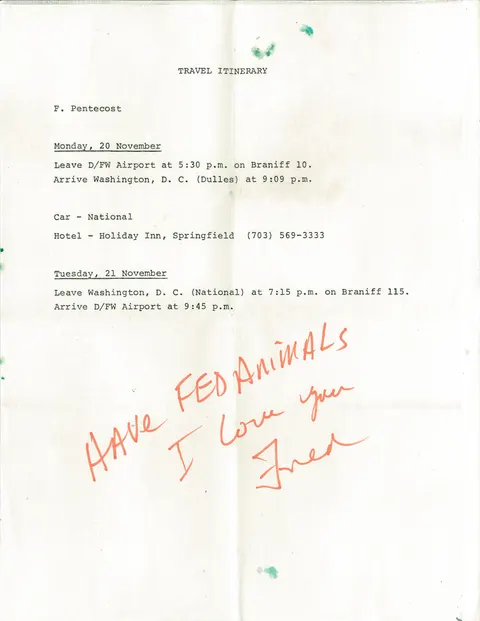 TRAVEL ITINERARY
F. Pentecost
Monday, 20 November
Leave D/FW Airport at 5:30 p.m. on Braniff 10.
Arrive Washington, D. C. (Dulles) at 9:09 p.m.
Car - National
Hotel - Holiday Inn, Springfield (703) 569-3333
Tuesday, 21 November
Leave Washington, D. C. (National) at 7:15 p.m. on Braniff 115.
Arrive D/FW Airport at 9:45 p.m.
HAVE FED ANIMALS
I love you
Fred